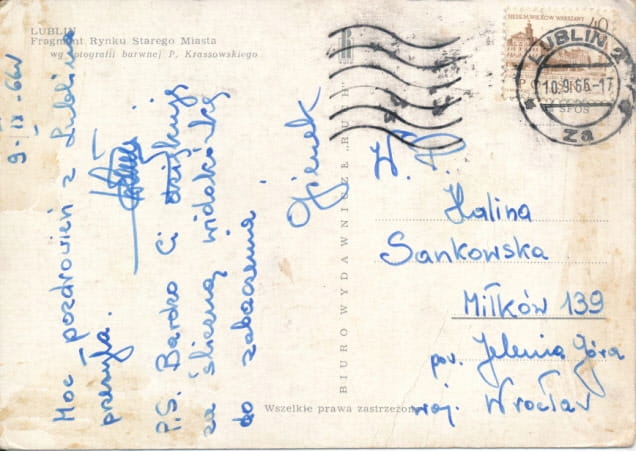 LUBLIN
Fragment Rynku Starego Miasta
wg fotografii barwnej P. Krassowskiego
9-IX-66r
Moc pozdrowień z Lublina
przesyła.
P.S. Bardzo Ci dziękuję
za śliczną widokówkę
do zobaczenia!
BIURO WYDAWNICZE „RUCH"
Wszelkie prawa zastrzeżone
40
LUBLIN 2
10.9.66-17
za
W.P.
Halina
Sankowska
Miłków 139
pow. Jelenia Góra
woj. Wrocław